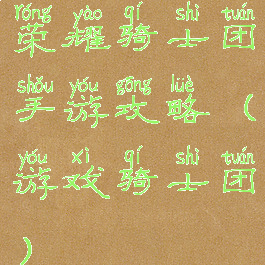 róng yào qí shì tuán
荣耀骑士团
shǒu yóu gōng lüè
手游攻略（
yóu xì qí shì tuán
游戏骑士团
）